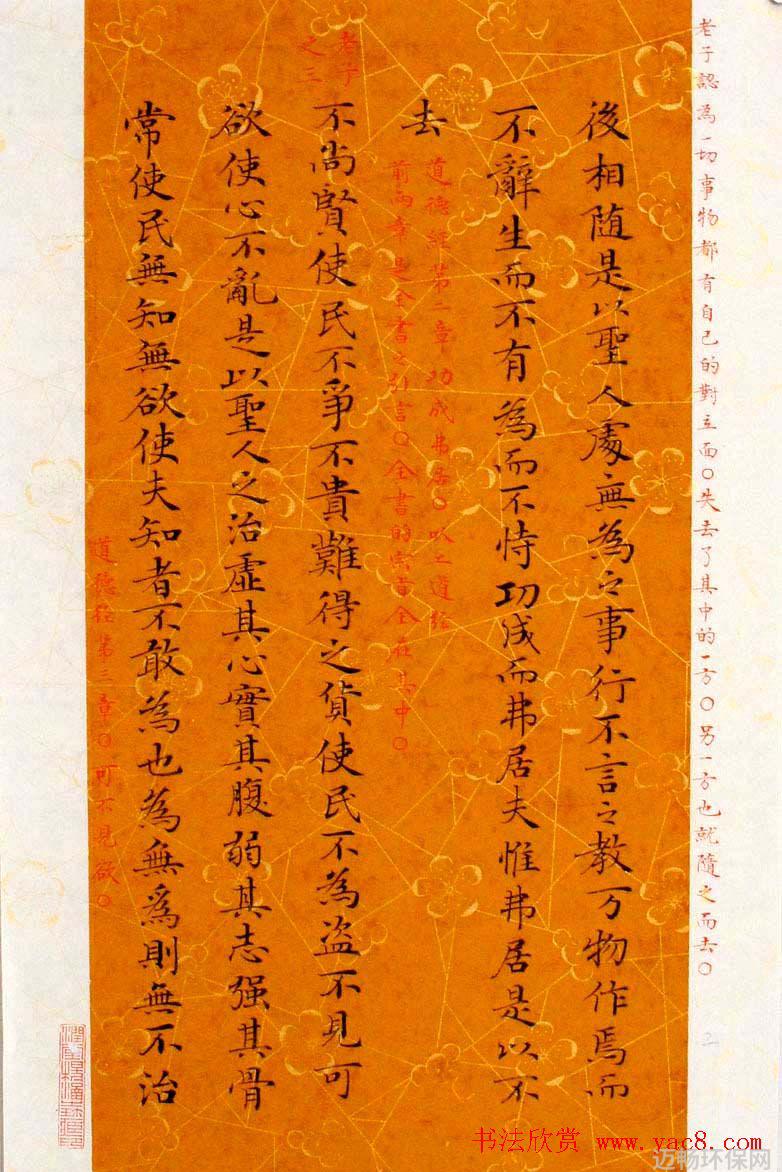 老子認為一切事物都有自己的對立面○失去了其中的一方○另一方也就隨之而去○
後相随是以聖人處無為之事行不言之教万物作焉而
不辭生而不有為而不恃功成而弗居夫惟弗居是以不
去
道德經第二章功成弗居○以上道经
前两章是全書之引言○全書的宗旨全在其中○
老子
之三
不尚賢使民不爭不貴難得之貨使民不為盗不見可
欲使心不亂是以聖人之治虚其心實其腹弱其志强其骨
常使民無知無欲使夫知者不敢為也為無為則無不治
道德经第三章○可不見欲○
2
书法欣赏 www.yac8.com
迈畅环保网